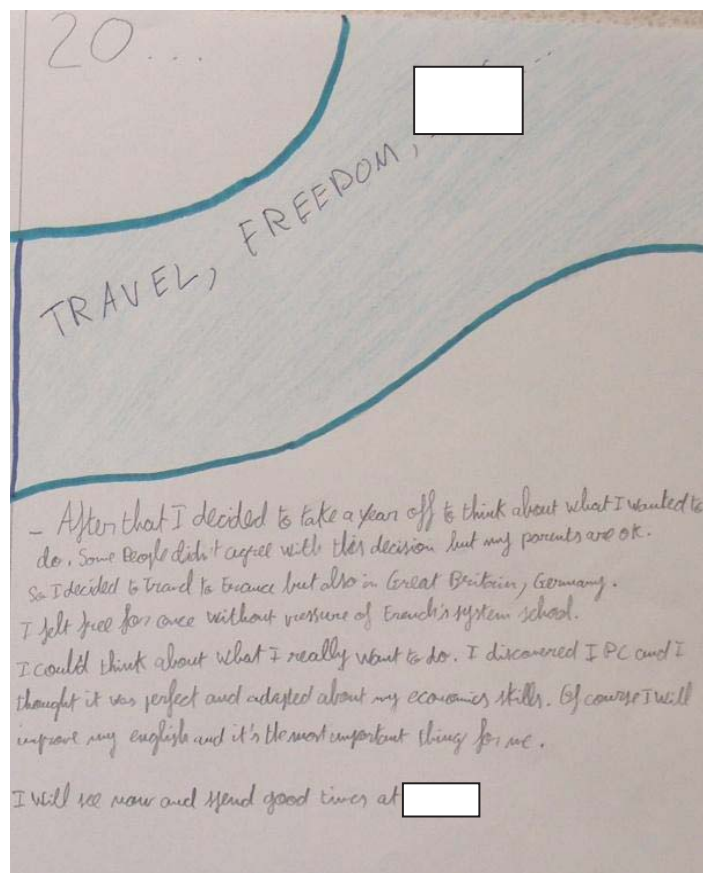 20...
TRAVEL, FREEDOM,
- After that I decided to take a year off to think about what I wanted to
do. Some People didn't agree with this decision but my parents are ok.
So I decided to travel to France but also in Great Britain, Germany.
I felt free for once without pressure of French's system school.
I could think about what I really want to do. I discovered IPC and I
thought it was perfect and adapted about my economics skills. Of course I will
improve my english and it's the most important thing for me.
I will see now and spend good times at